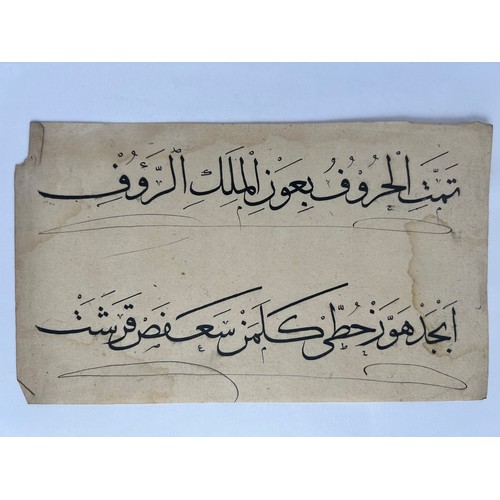 تَمَّتِ الْحُرُوْفُ بِعَوْنِ الْمَلِكِ الرَّؤُوْفِ
اَبْجَدْ هَوَّزْ حُطِّى كَلَمَنْ سَعَفَصْ قَرَشَتْ